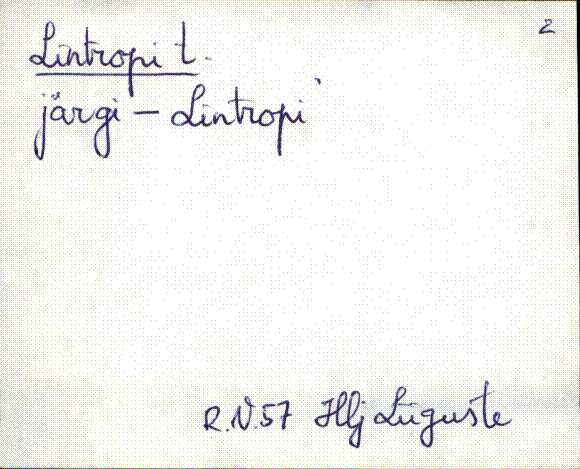 2
Lintropi t.
järgi – Lintropi
R.N.57 Hlj Lüguste